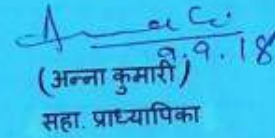 9.18
(अन्ना कुमारी)
सहा. प्राध्यापिका